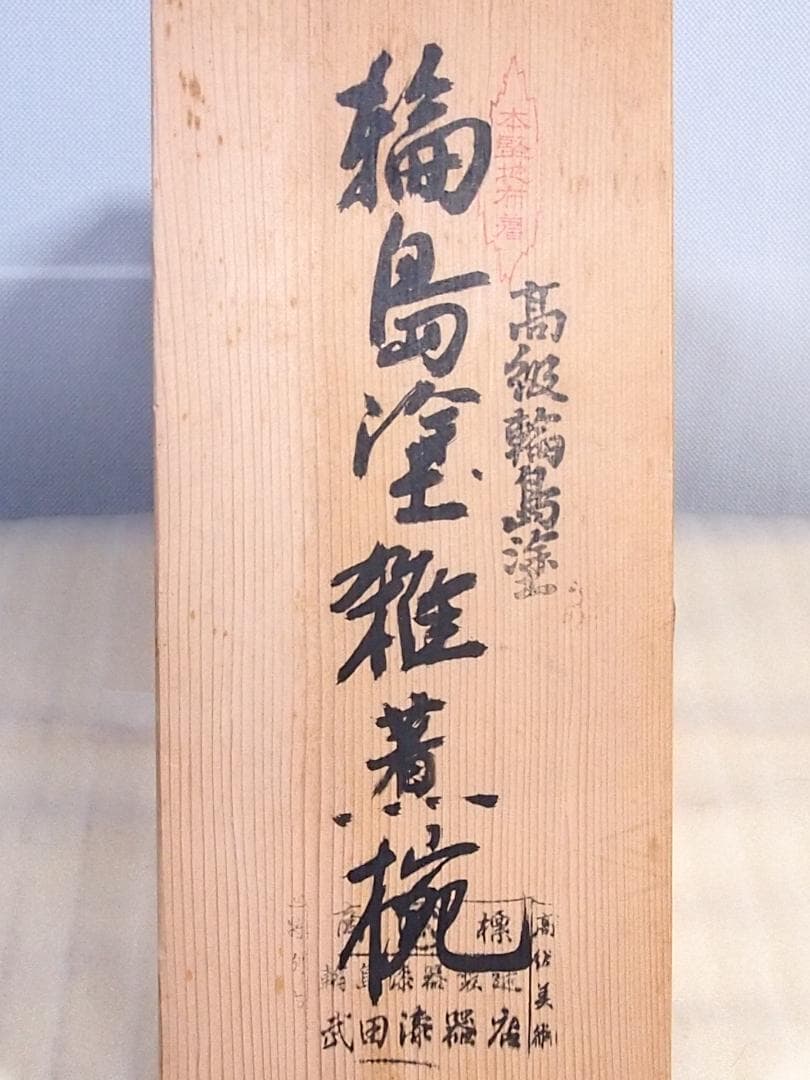 本堅地布着
高級輪島塗
輪島塗雑煮椀
標
高級美術
輪島漆器
武田漆器店